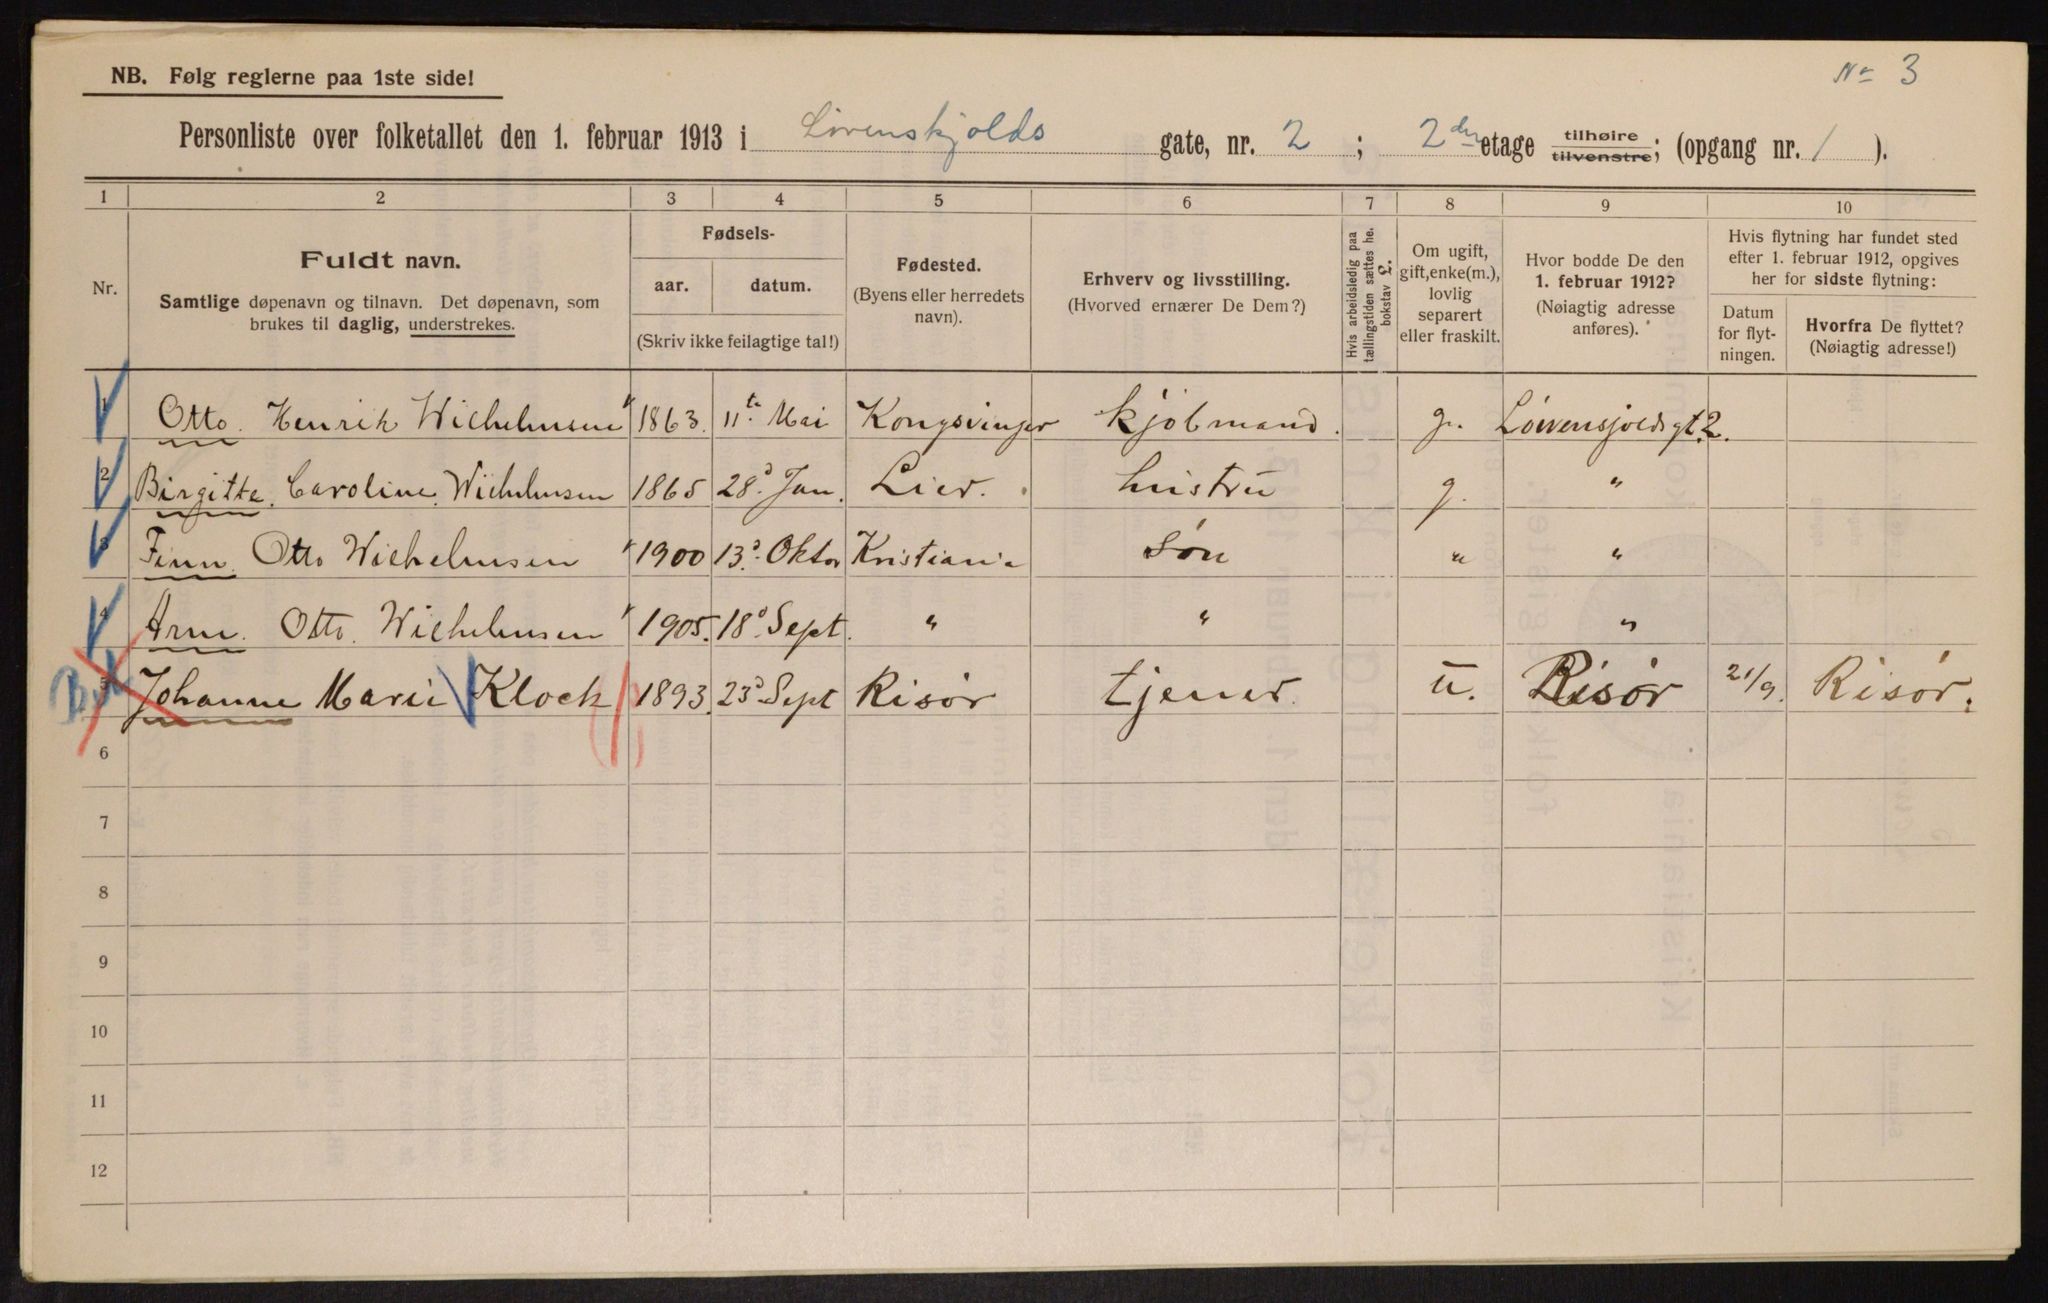 No 3
NB. Følg reglerne paa 1ste side!
Personliste over folketallet den 1. februar 1913 i Løvenskjolds gate, nr. 2 ; 2den etage tilhøire tilvenstre; (opgang nr. 1 ).
1 2 3 4 5 6 7 8 9 10
Nr.
Fuldt navn.
Samtlige døpenavn og tilnavn. Det døpenavn, som
brukes til daglig, understrekes.
Fødsels-
aar. datum.
(Skriv ikke feilagtige tal!)
Fødested.
(Byens eller herredets
navn).
Erhverv og livsstilling.
(Hvorved ernærer De Dem?)
Hvis arbeidsledig paa
tællingstiden sættes he.
bokstav £.
Om ugift,
gift,enke(m.),
lovlig
separert
eller fraskilt.
Hvor bodde De den
1. februar 1912?
(Nøiagtig adresse
anføres).
Hvis flytning har fundet sted
efter 1. februar 1912, opgives
her for sidste flytning:
Datum
for flyt-
ningen.
Hvorfra De flyttet?
(Nøiagtig adresse!)
1 Otto. Henrik Wilhelmsen 1863. 11te Mai Kongsvinger kjøbmand. g. Løvensjoldsgt. 2.
2 Birgitte. Caroline Wilhelmsen 1865 28d. Jan. Lier. hustru g. "
3 Finn. Otto Wilhelmsen 1900 13d. Oktor Kristiania søn " "
4 Arne. Otto. Wilhelmsen 1905. 18d. Sept. " " "
5 Johanne Marie Klock 1893. 23d Sept Risør tjener. u. Risør 21/9. Risør.
6
7
8
9
10
11
12